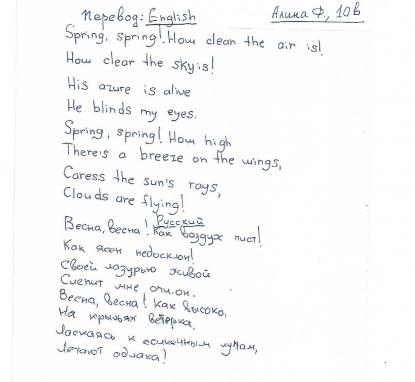 Перевод: English
Алина Ф., 10в.
Spring, spring! How clean the air is!
How clear the sky is!
His azure is alive
He blinds my eyes.
Spring, spring! How high
There's a breeze on the wings,
Caress the sun's rays,
Clouds are flying!
Русский
Весна, весна! Как воздух чист!
Как ясен небосклон!
Своей лазурью живой
Слепит мне очи он.
Весна, весна! Как высоко,
На крыльях ветерка,
Ласкаясь к солнечным лучам,
Летают облака!